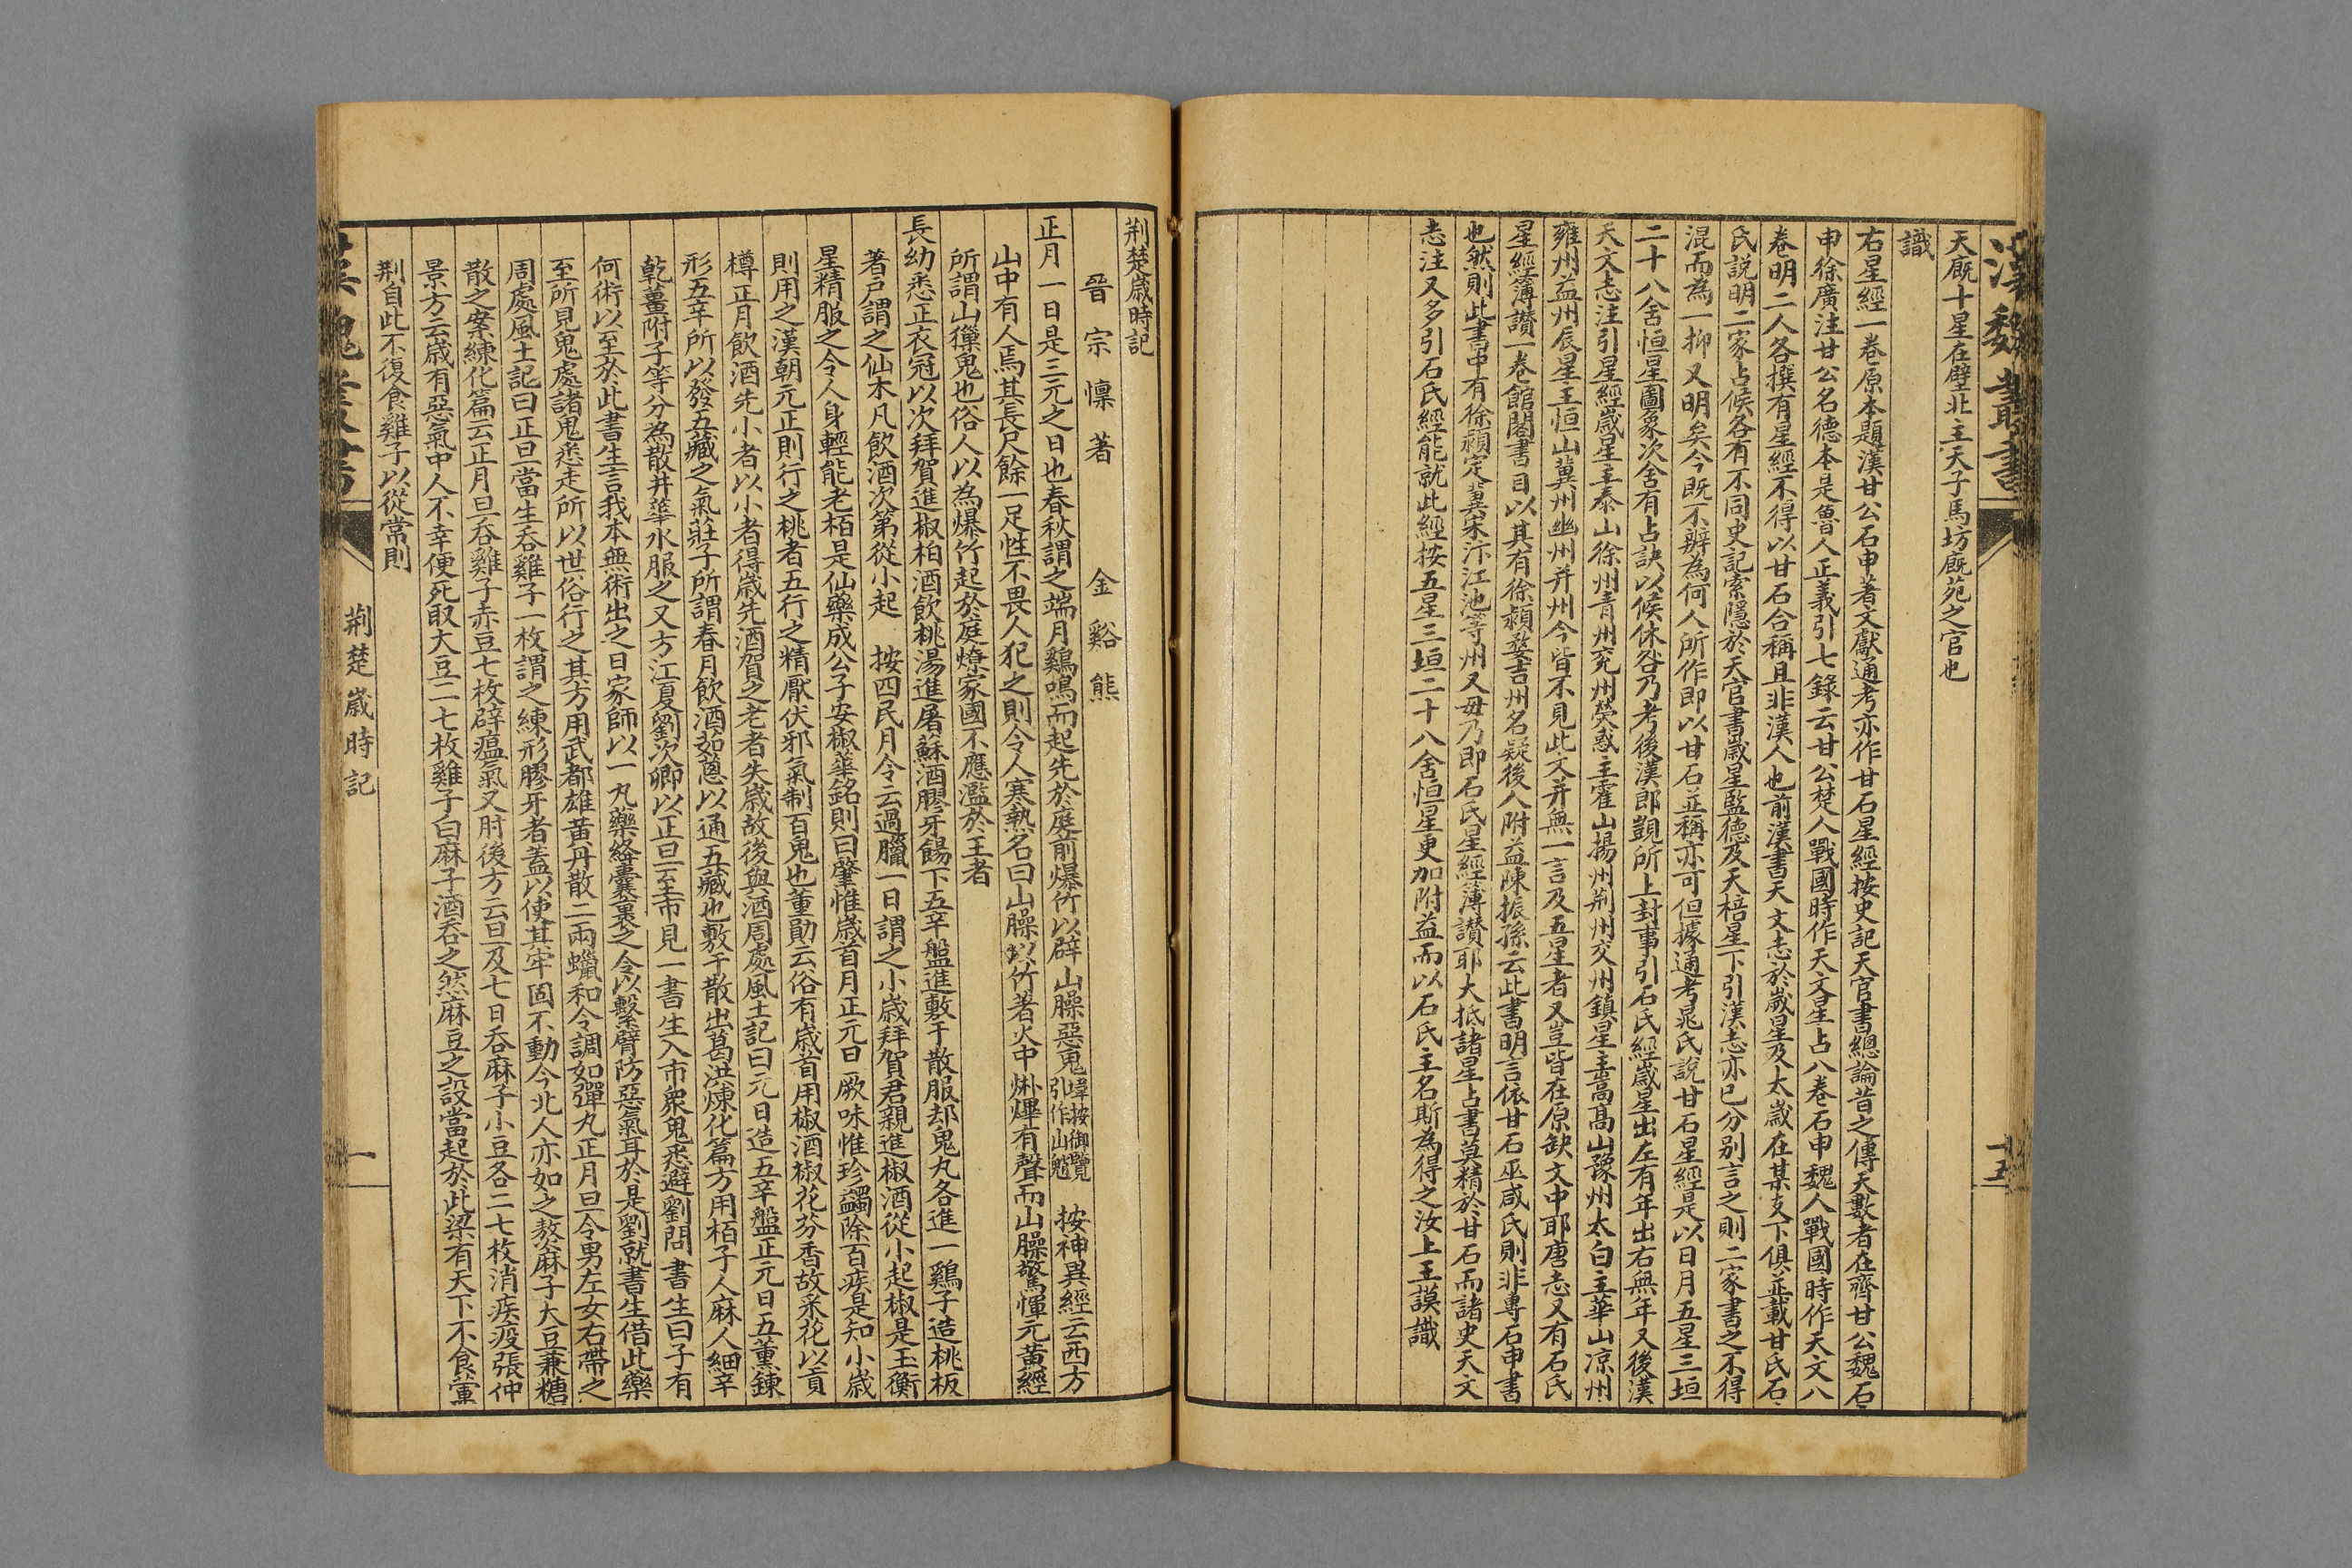 漢魏叢書
十五
天廐十星在壁北主天子馬坊廐苑之官也
識
右星經一卷原本題漢甘公石申著文獻通考亦作甘石星經按史記天官書總論昔之傳天數者在齊甘公魏石
申徐廣注甘公名德本是魯人正義引七錄云甘公楚人戰國時作天文星占八卷石申魏人戰國時作天文八
卷明二人各撰有星經不得以甘石合稱且非漢人也前漢書天文志於歲星及太歲在某支下俱並載甘氏石
氏說明二家占候各有不同史記索隱於天官書歲星監德及天棓星下引漢志亦已分別言之則二家書之不得
混而為一抑又明矣今既不辨為何人所作即以甘石並稱亦可但據通考晁氏說甘石星經是以日月五星三垣
二十八舍恒星圖象次舍有占訣以候休咎乃考後漢郎顗所上封事引石氏經歲星出左有年出右無年又後漢
天文志注引星經歲星主泰山徐州青州兖州熒惑主霍山揚州荆州交州鎮星主嵩高山豫州太白主華山凉州
雍州益州辰星主恒山冀州幽州并州今皆不見此文并無一言及五星者又豈皆在原缺文中耶唐志又有石氏
星經簿讚一卷館閣書目以其有徐潁婺吉州名疑後人附益陳振孫云此書明言依甘石巫咸氏則非專石申書
也然則此書中有徐潁定冀宋汴江池等州又毋乃即石氏星經簿讚耶大抵諸星占書莫精於甘石而諸史天文
志注又多引石氏經能就此經按五星三垣二十八舍恒星更加附益而以石氏主名斯為得之汝上王謨識
荆楚歲時記
晉 宗懍著 金谿熊
正月一日是三元之日也春秋謂之端月鷄鳴而起先於庭前爆竹以辟山臊惡鬼暐按御覽引作山魈 按神異經云西方
山中有人焉其長尺餘一足性不畏人犯之則令人寒熱名曰山臊以竹著火中烞熚有聲而山臊驚憚元黃經
所謂山𤢖鬼也俗人以為爆竹起於庭燎家國不應濫於王者
長幼悉正衣冠以次拜賀進椒柏酒飲桃湯進屠蘇酒膠牙餳下五辛盤進敷于散服却鬼丸各進一鷄子造桃板
著戶謂之仙木凡飲酒次第從小起 按四民月令云過臘一日謂之小歲拜賀君親進椒酒從小起椒是玉衡
星精服之令人身輕能老栢是仙藥成公子安椒華銘則曰肇惟歲首月正元日厥味惟珍蠲除百疾是知小歲
則用之漢朝元正則行之桃者五行之精厭伏邪氣制百鬼也董勛云俗有歲首用椒酒椒花芬香故采花以貢
樽正月飲酒先小者以小者得歲先酒賀之老者失歲故後與酒周處風土記曰元日造五辛盤正元日五薰鍊
形五辛所以發五藏之氣莊子所謂春月飲酒茹蔥以通五藏也敷于散出葛洪煉化篇方用栢子人麻人細辛
乾薑附子等分為散井華水服之又方江夏劉次卿以正旦至市見一書生入市衆鬼悉避劉問書生曰子有
何術以至於此書生言我本無術出之日家師以一丸藥絡囊裹之令以繫臂防惡氣耳於是劉就書生借此藥
至所見鬼處諸鬼悉走所以世俗行之其方用武都雄黃丹散二兩蠟和令調如彈丸正月旦令男左女右帶之
周處風土記曰正旦當生吞雞子一枚謂之練形膠牙者蓋以使其牢固不動今北人亦如之熬麻子大豆兼糖
散之案練化篇云正月旦吞雞子赤豆七枚辟瘟氣又肘後方云旦及七日吞麻子小豆各二七枚消疾疫張仲
景方云歲有惡氣中人不幸便死取大豆二七枚雞子白麻子酒吞之然麻豆之設當起於此梁有天下不食葷
荆自此不復食雞子以從常則
漢魏叢書
荆楚歲時記
一